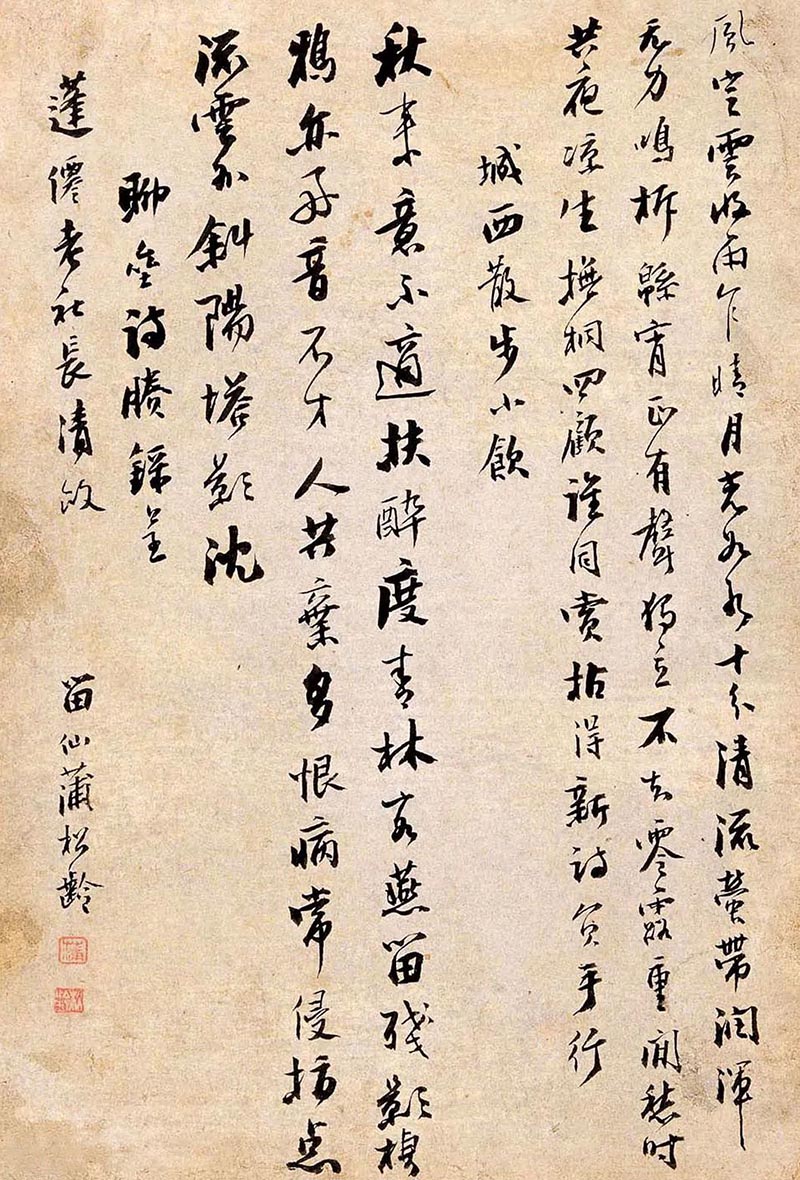 風定雲收雨乍晴月光如水十分清流螢帶潤渾
无力鳴柝緜宵正有聲獨立不知零露重閒愁时
共夜凉生撫桐四顧誰同賞拈得新詩負手行
城西散步小飲
秋來意不適扶醉度青林客燕留殘影
鴉亦好音不才人共棄多恨病常侵指点
流雲外斜陽塔影沈
聊齋詩賸錄呈
蓬僊老社長清政 留仙蒲松齡